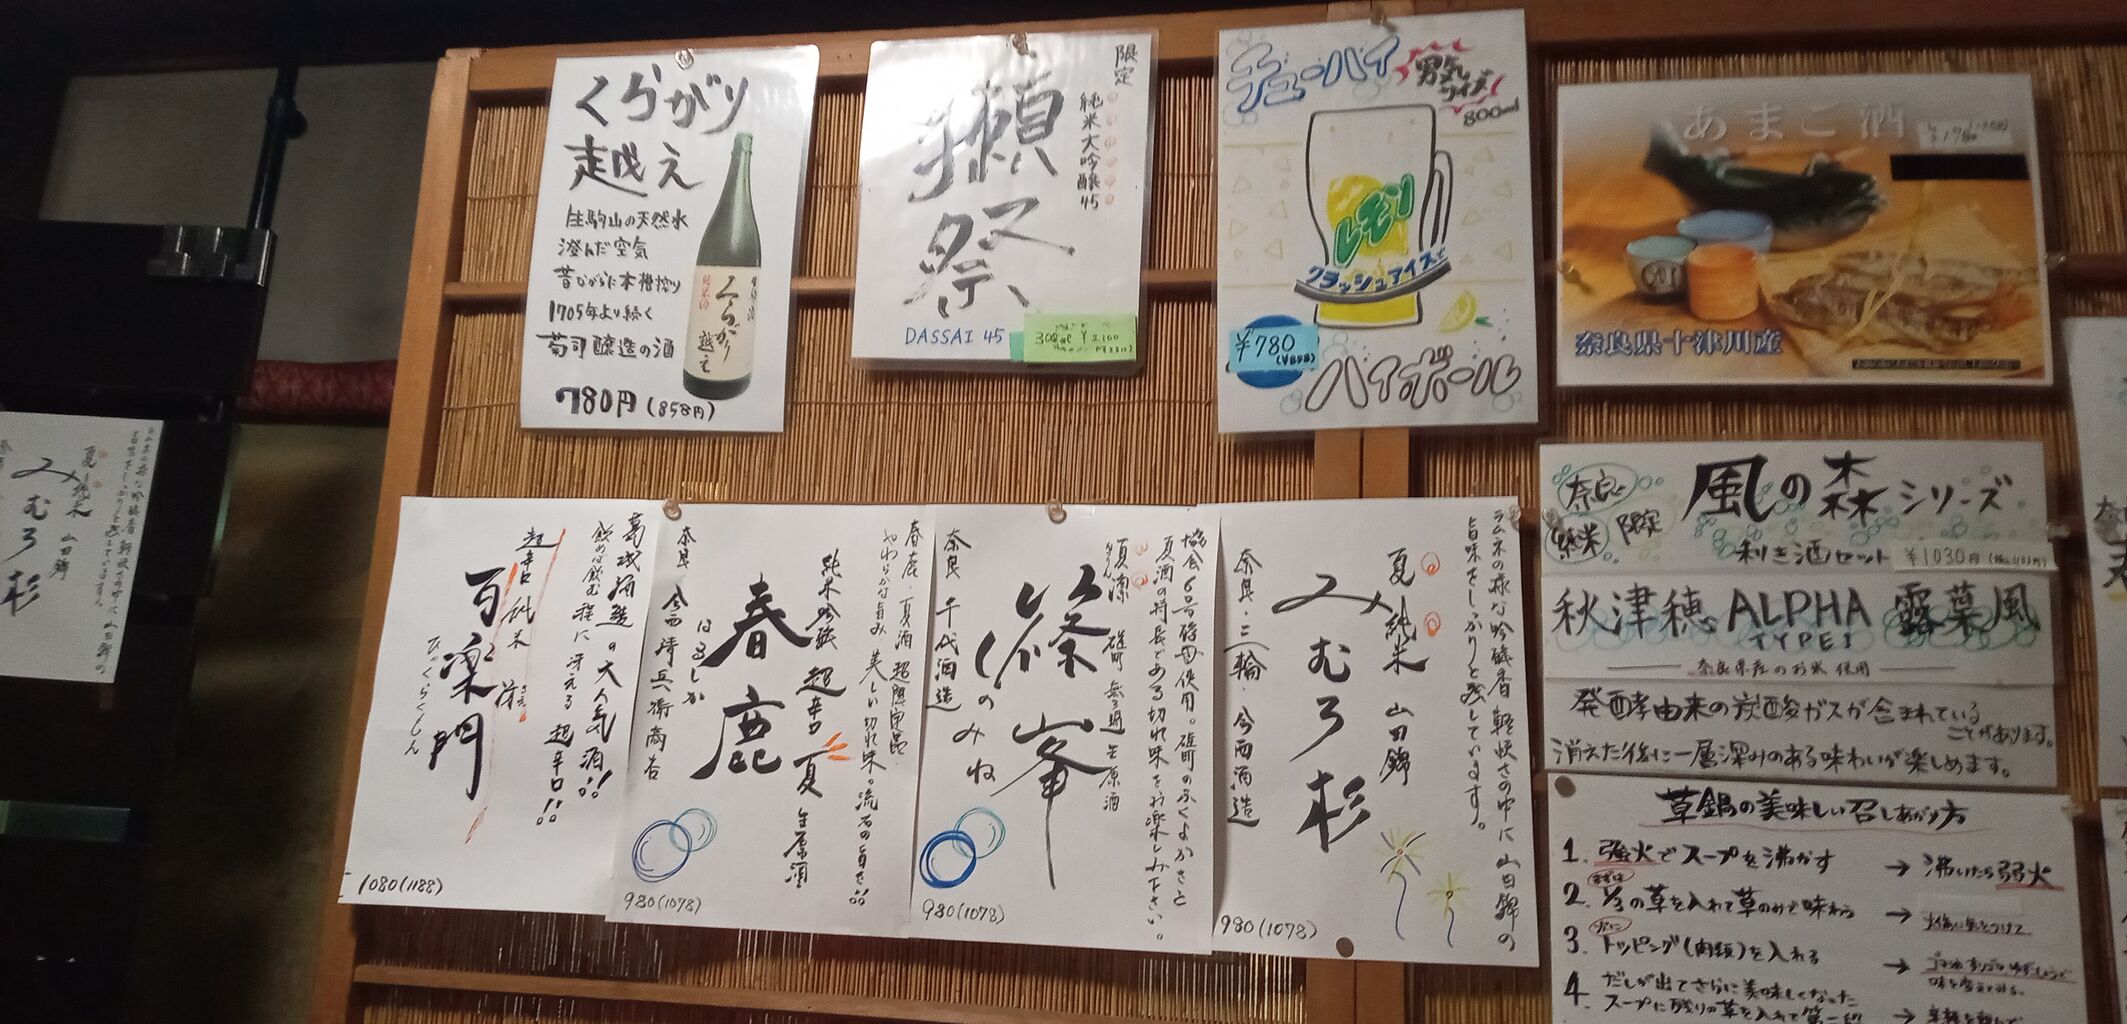 くらがり
越え
生駒山の天然水
澄んだ空気
昔ながらな本槽搾り
1705年より続く
菊司醸造の酒
780円(858円)
くらがり
越え
限定
純米大吟醸45
獺祭
DASSAI 45
300ml ¥2,100
チューハイ
男気サイズ
800ml
レモン
クラッシュアイスで
¥780
(¥858)
ハイボール
あまご酒
奈良県十津川産
奈良
純米
限定
風の森シリーズ
利き酒セット ¥1030円
秋津穂 ALPHA 露葉風
TYPE1
奈良県産のお米使用
発酵由来の炭酸ガスが含まれている
ことがあります。
消えた後に一層深みのある味わいが楽しめます。
草鍋の美味しい召しあがり方
1. 強火でスープを沸かす → 沸いたら弱火
2. まずは 1/3の草を入れて草のみで味わう →
3. 次に トッピング(肉類)を入れる →
4. だしが出てさらに美味しくなった
スープに残りの草を入れて
ラムネの様な吟醸香 軽快さの中に山田錦の
旨味をしっかりと残しています。
夏純米 山田錦
みむろ杉
奈良・三輪・今西酒造
980(1078)
協会6号酵母使用。雄町のふくよかさと
夏酒の特長である切れ味をお楽しみ下さい。
夏凛 雄町 無ろ過生原酒
篠峯
しのみね
奈良 千代酒造
980(1078)
春鹿 夏酒 超限定品
やわらかな旨み 美しい切れ味。流石の旨さ!!
純米吟醸 超辛口 夏 生原酒
春鹿
はるしか
奈良 今西清兵衛商店
980(1078)
葛城酒造の大人気酒!!
飲めば飲む程に冴える超辛口!!
超辛口 純米 冴
さえ
百楽門
ひゃくらくもん
1080(1188)
夏純米 山田錦
みむろ杉